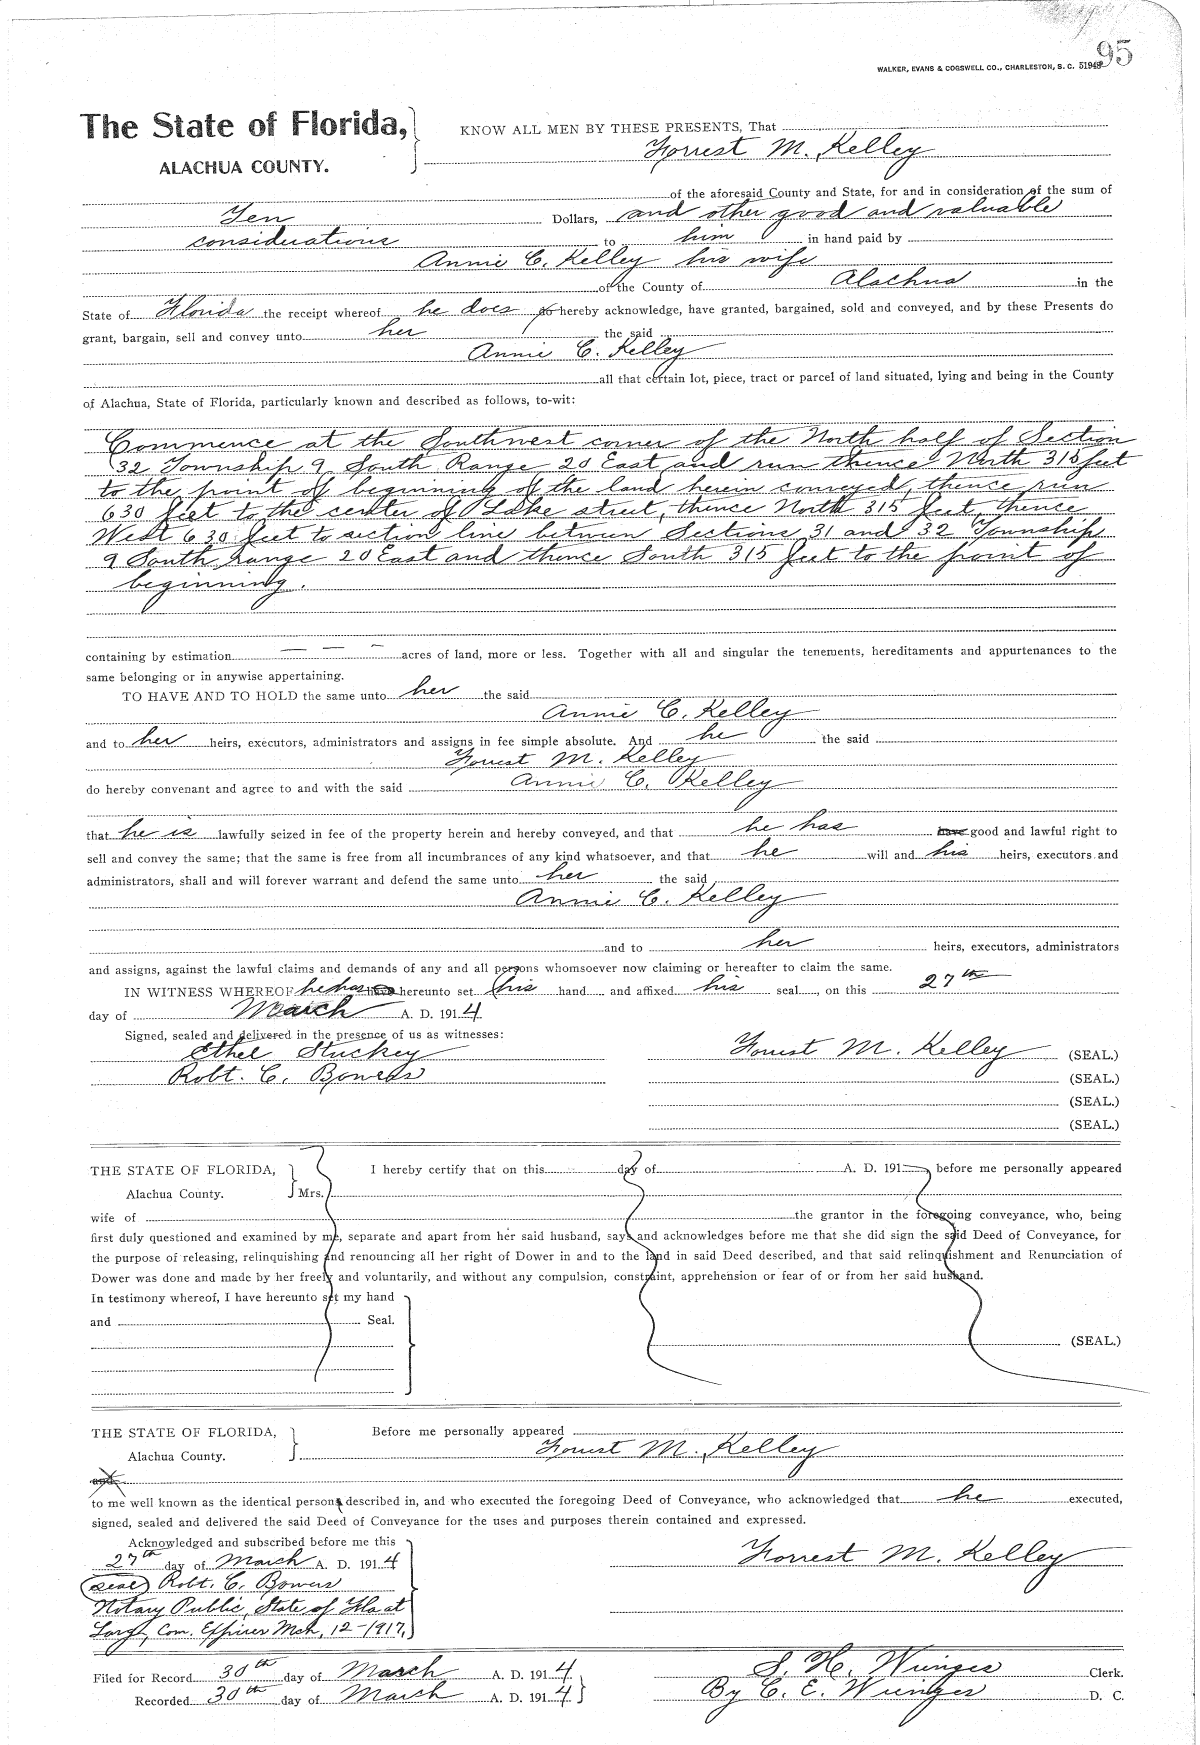 95
WALKER, EVANS & COGSWELL CO., CHARLESTON, S. C. 51948
The State of Florida,
ALACHUA COUNTY.
KNOW ALL MEN BY THESE PRESENTS, That
Forrest M. Kelley
of the aforesaid County and State, for and in consideration of the sum of
Ten Dollars, and other good and valuable
considerations to him in hand paid by
Annie C. Kelley his wife
of the County of Alachua in the
State of Florida the receipt whereof he does do hereby acknowledge, have granted, bargained, sold and conveyed, and by these Presents do
grant, bargain, sell and convey unto her the said
Annie C. Kelley
all that certain lot, piece, tract or parcel of land situated, lying and being in the County
of Alachua, State of Florida, particularly known and described as follows, to-wit:
Commence at the Southwest corner of the North half of Section
32 Township 9 South Range 20 East and run thence North 315 feet
to the point of beginning of the land herein conveyed, thence run
630 feet to the center of Lake street, thence North 315 feet, thence
West 630 feet to section line between Sections 31 and 32 Township
9 South range 20 East and thence South 315 feet to the point of
beginning.
containing by estimation — — — acres of land, more or less. Together with all and singular the tenements, hereditaments and appurtenances to the
same belonging or in anywise appertaining.
TO HAVE AND TO HOLD the same unto her the said
Annie C. Kelley
and to her heirs, executors, administrators and assigns in fee simple absolute. And he the said
Forrest M. Kelley
do hereby convenant and agree to and with the said Annie C. Kelley
that he is lawfully seized in fee of the property herein and hereby conveyed, and that he has have good and lawful right to
sell and convey the same; that the same is free from all incumbrances of any kind whatsoever, and that he will and his heirs, executors and
administrators, shall and will forever warrant and defend the same unto her the said
Annie C. Kelley
and to her heirs, executors, administrators
and assigns, against the lawful claims and demands of any and all persons whomsoever now claiming or hereafter to claim the same.
IN WITNESS WHEREOF he has have hereunto set his hand and affixed his seal, on this 27th
day of March A. D. 1914
Signed, sealed and delivered in the presence of us as witnesses:
Ethel Stuckey Forrest M. Kelley (SEAL.)
Robt. C. Bowers (SEAL.)
(SEAL.)
(SEAL.)
THE STATE OF FLORIDA, I hereby certify that on this day of A. D. 191 before me personally appeared
Alachua County. Mrs.
wife of the grantor in the foregoing conveyance, who, being
first duly questioned and examined by me, separate and apart from her said husband, says and acknowledges before me that she did sign the said Deed of Conveyance, for
the purpose of releasing, relinquishing and renouncing all her right of Dower in and to the land in said Deed described, and that said relinquishment and Renunciation of
Dower was done and made by her freely and voluntarily, and without any compulsion, constraint, apprehension or fear of or from her said husband.
In testimony whereof, I have hereunto set my hand
and Seal.
(SEAL.)
THE STATE OF FLORIDA, Before me personally appeared
Alachua County. Forrest M. Kelley
and
to me well known as the identical persons described in, and who executed the foregoing Deed of Conveyance, who acknowledged that he executed,
signed, sealed and delivered the said Deed of Conveyance for the uses and purposes therein contained and expressed.
Acknowledged and subscribed before me this
27th day of March A. D. 1914 Forrest M. Kelley
(seal) Robt. C. Bowers
Notary Public, State of Fla at
Large, Com. Expires Mch, 12-1917,
Filed for Record 30th day of March A. D. 1914 S. H. Wienges Clerk.
Recorded 30th day of March A. D. 1914 By C. E. Wienges D. C.